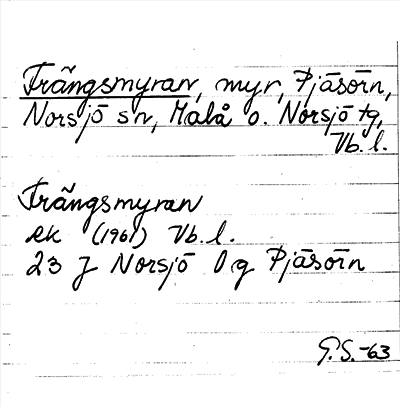 Trängsmyran, myr, Pjäsörn,
Norsjö sn, Malå o. Norsjö tg,
Vb. l.
Trängsmyran
ek (1961) Vb. l.
23 J Norsjö 0 g Pjäsörn
G.S. -63